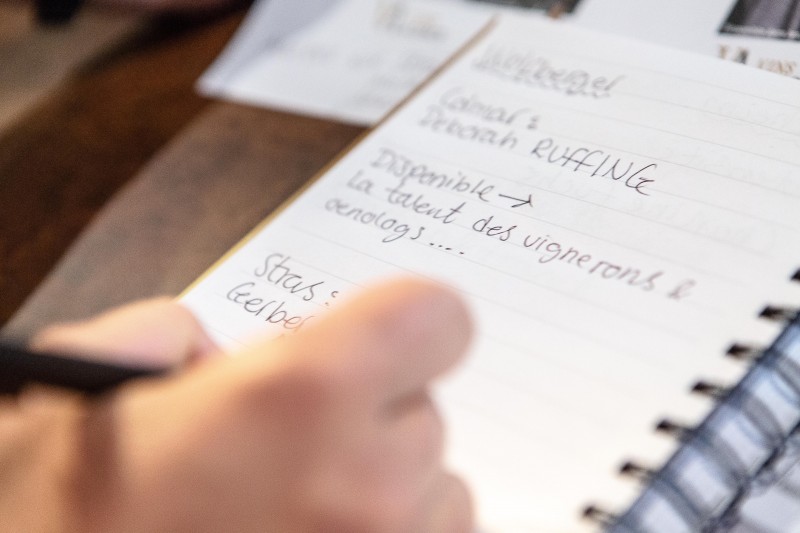 Wolfberger
Colmar :
Deborah RUFFING
Disponible →
La talent des vignerons &
oenologs ....
Stras :
Gerber